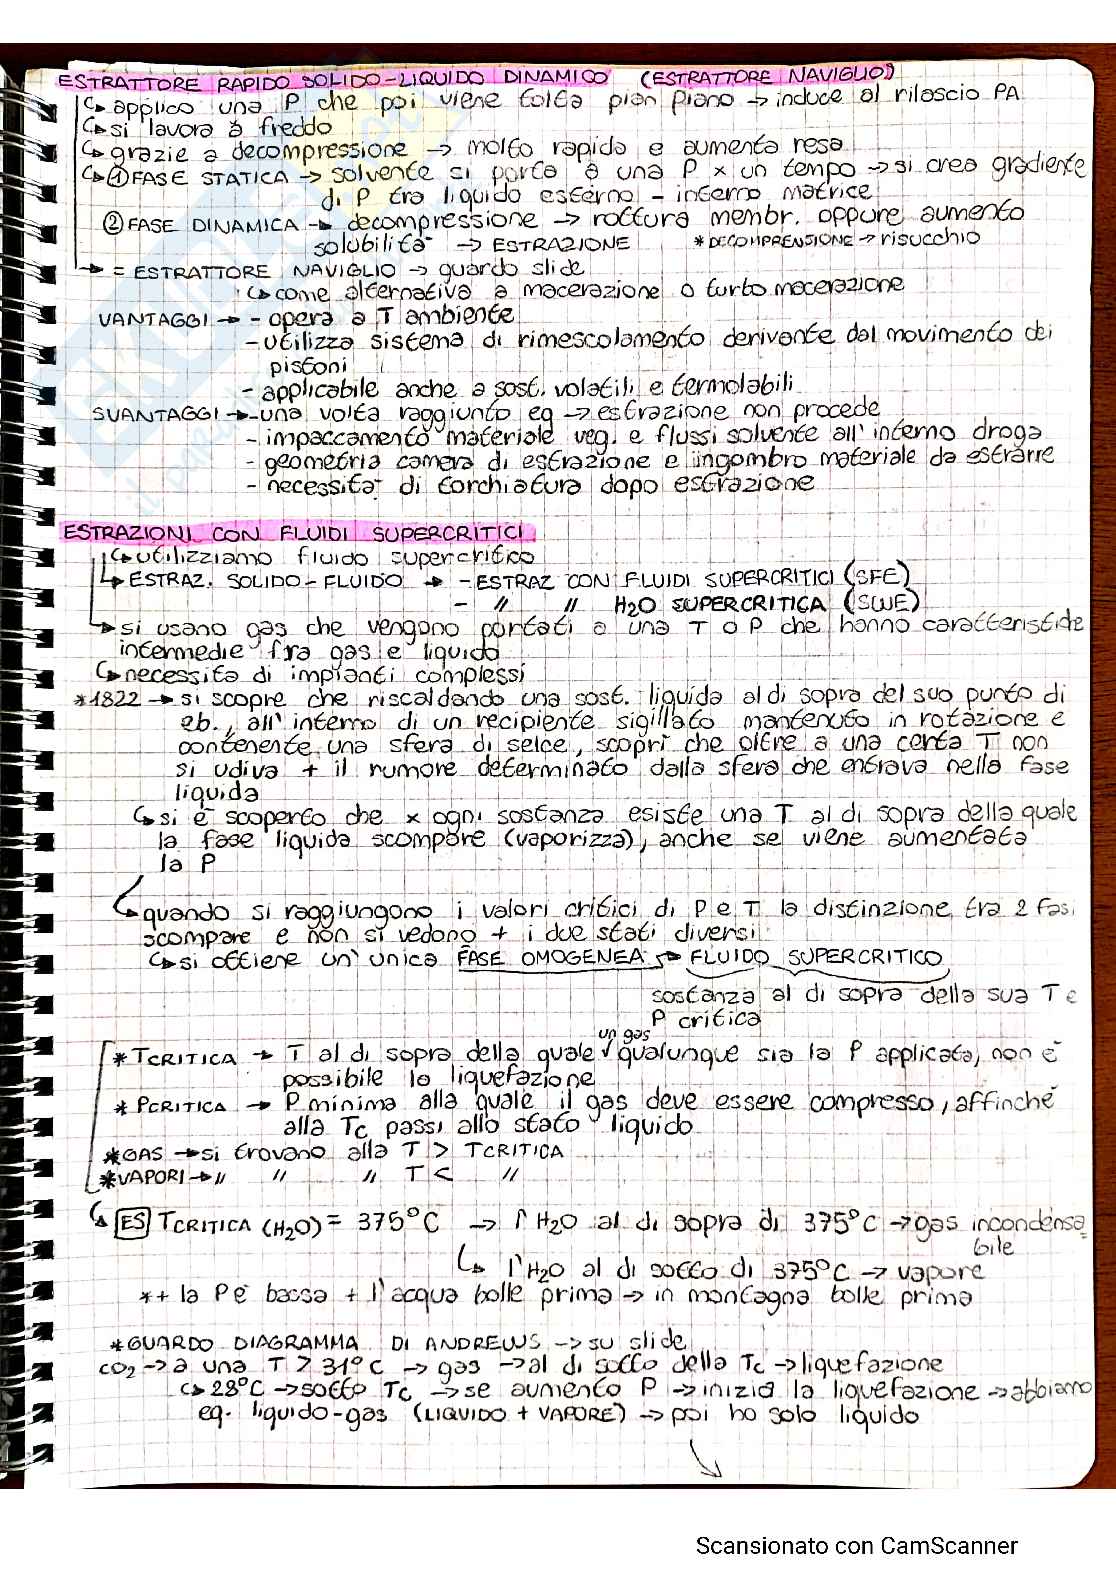 ESTRATTORE RAPIDO SOLIDO-LIQUIDO DINAMICO (ESTRATTORE NAVIGLIO)
↳ applico una P che poi viene tolta pian piano → induce al rilascio PA
↳ si lavora a freddo
↳ grazie a decompressione → molto rapida e aumenta resa
↳ ① FASE STATICA → solvente si porta a una P x un tempo → si crea gradiente
di P tra liquido esterno - interno matrice
② FASE DINAMICA → decompressione → rottura membr. oppure aumento
solubilità → ESTRAZIONE *DECOMPRENSIONE → risucchio
→ = ESTRATTORE NAVIGLIO → guardo slide
↳ come alternativa a macerazione o turbo macerazione
VANTAGGI → - opera a T ambiente
- utilizza sistema di rimescolamento derivante dal movimento dei
pistoni
- applicabile anche a sost. volatili e termolabili
SVANTAGGI → - una volta raggiunto eq → estrazione non procede
- impaccamento materiale veg. e flussi solvente all'interno droga
- geometria camera di estrazione e ingombro materiale da estrarre
- necessità di torchiatura dopo estrazione
ESTRAZIONI CON FLUIDI SUPERCRITICI
↳ utilizziamo fluido supercritico
↳ ESTRAZ. SOLIDO-FLUIDO → - ESTRAZ CON FLUIDI SUPERCRITICI (SFE)
- // // H2O SUPERCRITICA (SWE)
↳ si usano gas che vengono portati a una T o P che hanno caratteristiche
intermedie fra gas e liquido
↳ necessita di impianti complessi
*1822 → si scopre che riscaldando una sost. liquida al di sopra del suo punto di
eb., all'interno di un recipiente sigillato mantenuto in rotazione e
contenente una sfera di selce, scoprì che oltre a una certa T non
si udiva + il rumore determinato dalla sfera che entrava nella fase
liquida
↳ si è scoperto che x ogni sostanza esiste una T al di sopra della quale
la fase liquida scompare (vaporizza), anche se viene aumentata
la P
↳ quando si raggiungono i valori critici di P e T la distinzione tra 2 fasi
scompare e non si vedono + i due stati diversi
↳ si ottiene un'unica FASE OMOGENEA → FLUIDO SUPERCRITICO
sostanza al di sopra della sua T e
P critica
*TCRITICA → T al di sopra della quale √ un gas qualunque sia la P applicata, non è
possibile la liquefazione
*PCRITICA → P minima alla quale il gas deve essere compresso, affinché
alla Tc passi allo stato liquido
*GAS → si trovano alla T > TCRITICA
*VAPORI → // // // T < //
↳ ES TCRITICA (H2O) = 375°C → l'H2O al di sopra di 375°C → gas incondensa
bile
↳ l'H2O al di sotto di 375°C → vapore
*+ la P è bassa + l'acqua bolle prima → in montagna bolle prima
*GUARDO DIAGRAMMA DI ANDREWS → su slide
CO2 → a una T > 31°C → gas → al di sotto della Tc → liquefazione
↳ 28°C → sotto Tc → se aumento P → inizia la liquefazione → abbiamo
eq. liquido-gas (LIQUIDO + VAPORE) → poi ho solo liquido
Scansionato con CamScanner